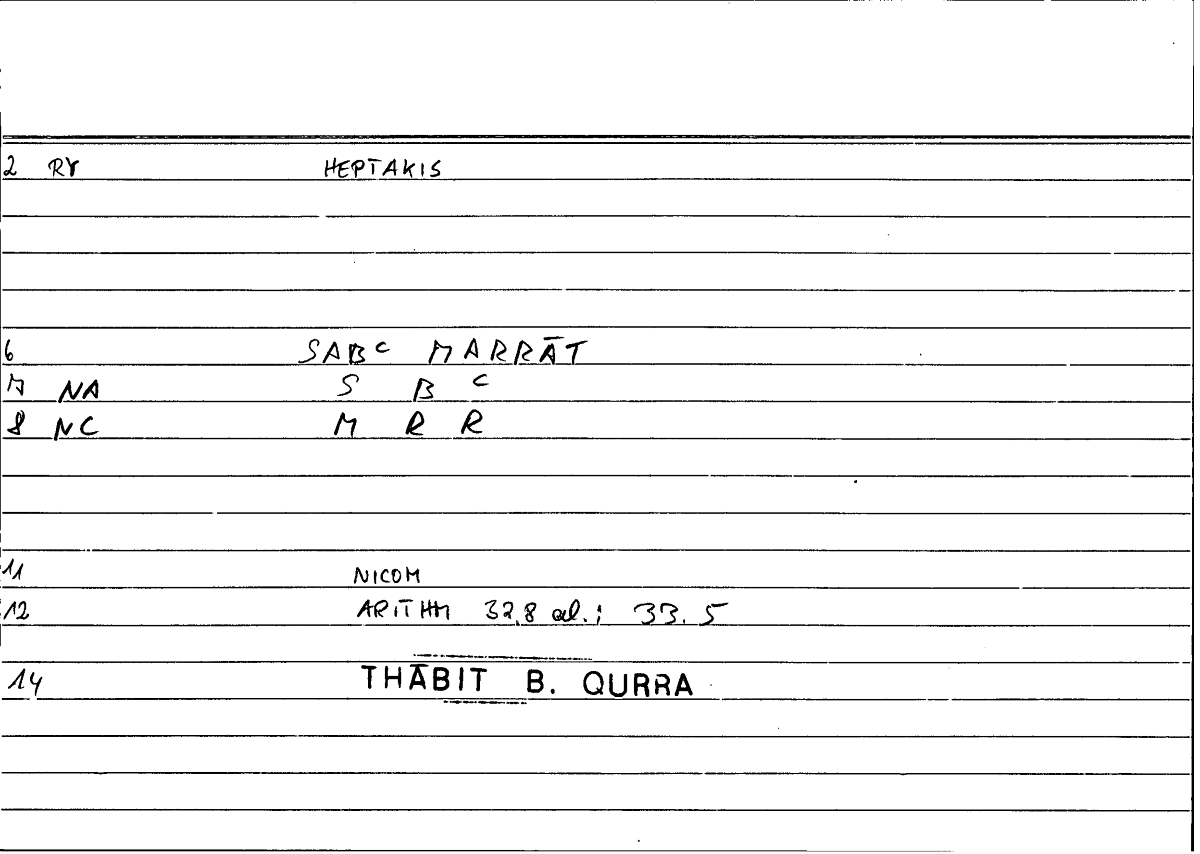 2 RY HEPTAKIS
6 SABC MARRĀT
7 NA S B C
8 NC M R R
11 NICOM
12 ARITHM 32,8 al.; 33.5
14 THĀBIT B. QURRA